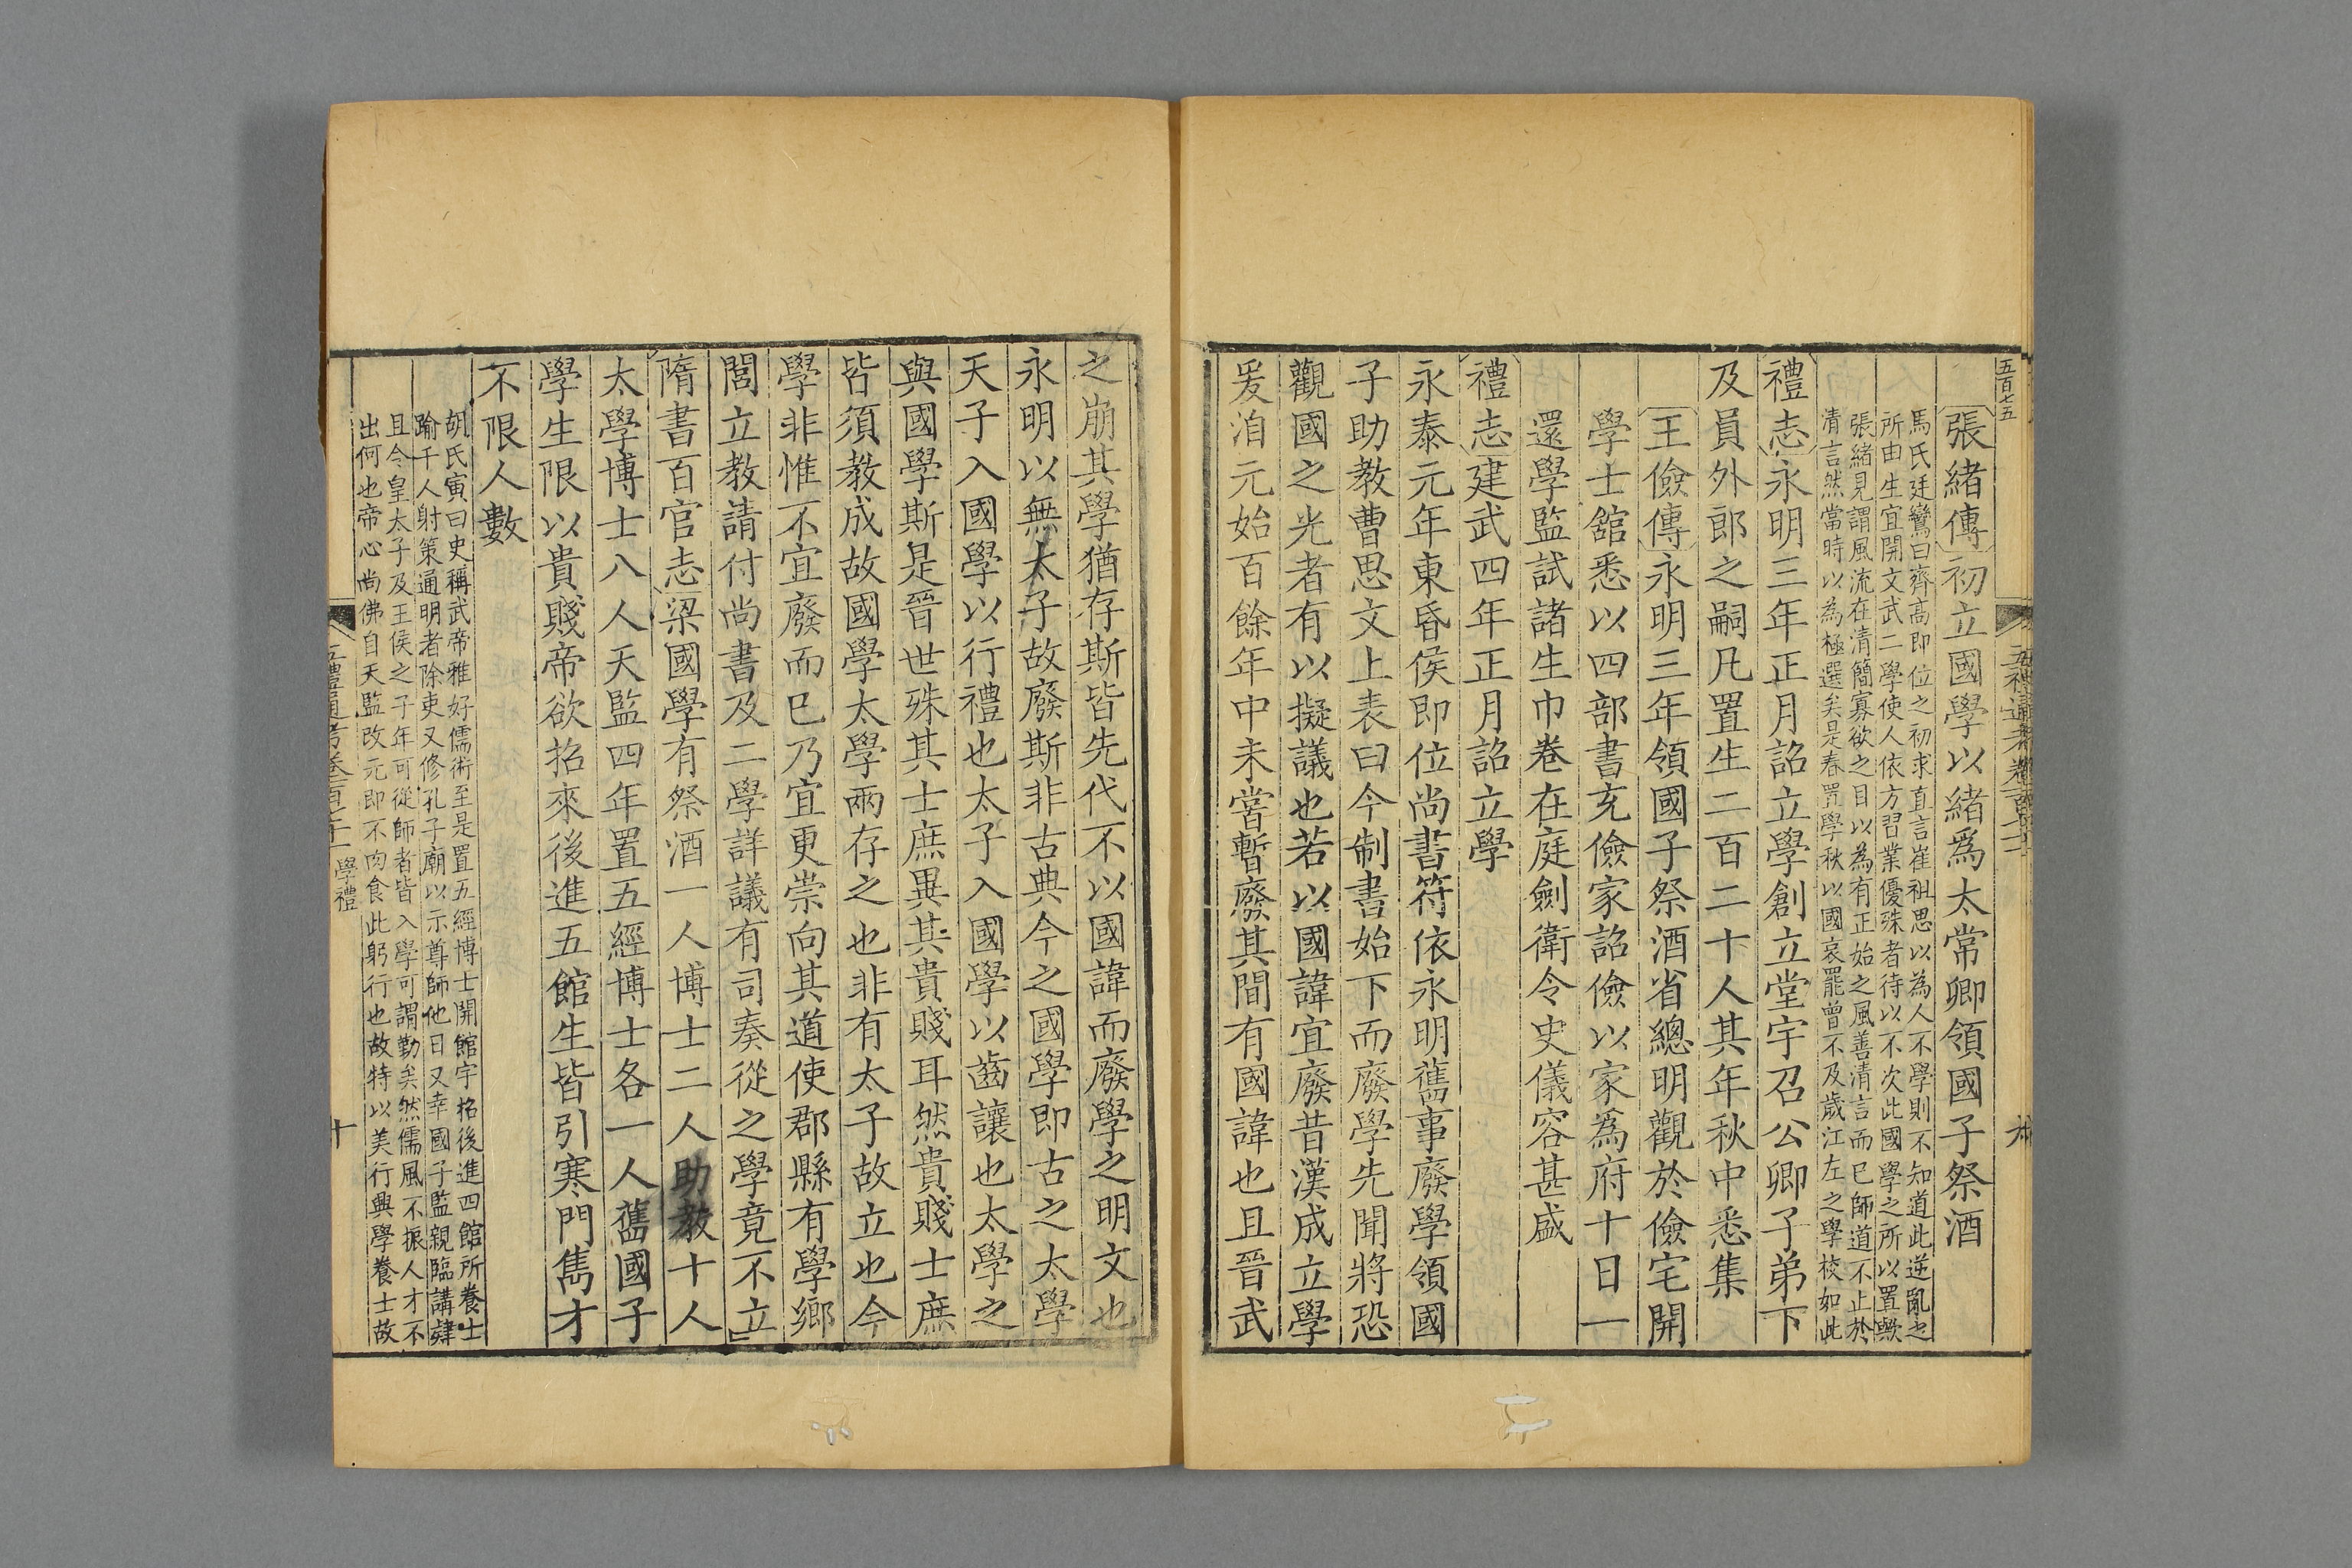 五百七五
張緒傳初立國學以緒爲太常卿領國子祭酒
馬氏廷鸞曰齊高即位之初求直言崔祖思以為人不學則不知道此逆亂之
所由生宜開文武二學使人依方習業優殊者待以不次此國學之所以置歟
張緒見謂風流在清簡寡欲之目以為有正始之風善清言而已師道不止於
清言然當時以為極選矣是春置學秋以國哀罷曾不及歲江左之學校如此
禮志永明三年正月詔立學創立堂宇召公卿子弟下
及員外郎之嗣凡置生二百二十人其年秋中悉集
王儉傳永明三年領國子祭酒省總明觀於儉宅開
學士舘悉以四部書充儉家詔儉以家為府十日一
還學監試諸生巾卷在庭劍衛令史儀容甚盛
禮志建武四年正月詔立學
永泰元年東昏侯即位尚書符依永明舊事廢學領國
子助教曹思文上表曰今制書始下而廢學先聞將恐
觀國之光者有以擬議也若以國諱宜廢昔漢成立學
爰洎元始百餘年中未嘗暫廢其間有國諱也且晉武
之崩其學猶存斯皆先代不以國諱而廢學之明文也
永明以無太子故廢斯非古典今之國學即古之太學
天子入國學以行禮也太子入國學以齒讓也太學之
與國學斯是晉世殊其士庶異其貴賤耳然貴賤士庶
皆須教成故國學太學兩存之也非有太子故立也今
學非惟不宜廢而已乃宜更崇向其道使郡縣有學鄉
閭立教請付尚書及二學詳議有司奏從之學竟不立
隋書百官志梁國學有祭酒一人博士二人助教十人
太學博士八人天監四年置五經博士各一人舊國子
學生限以貴賤帝欲招來後進五館生皆引寒門雋才
不限人數
胡氏寅曰史稱武帝雅好儒術至是置五經博士開館宇招後進四館所養士
踰千人射策通明者除吏又修孔子廟以示尊師他日又幸國子監親臨講肄
且令皇太子及王侯之子年可從師者皆入學可謂勤矣然儒風不振人才不
出何也帝心尚佛自天監改元即不肉食此躬行也故特以美行興學養士故
五禮通考卷一百七十一 學禮 十